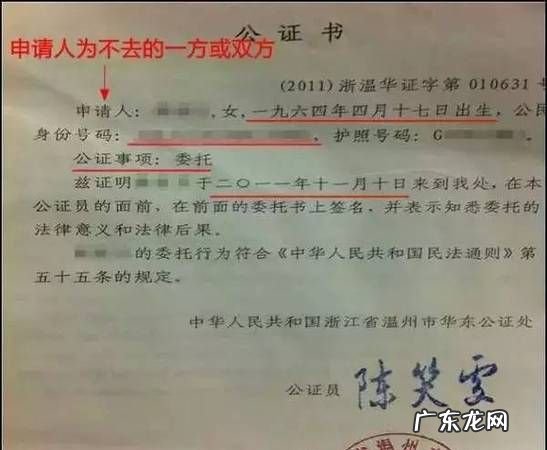 公证书
申请人为不去的一方或双方
(2011)浙温华证字第 010631 号
申请人：,女,一九六四年四月十七日出生，公民
身份号码：,护照号码：G
公证事项：委托
兹证明于二〇一一年十一月十日来到我处，在本
公证员的面前，在前面的委托书上签名，并表示知悉委托的
法律意义和法律后果。
的委托行为符合《中华人民共和国民法通则》第
五十五条的规定。
中华人民共和国浙江省温州市华东公证处
公证员 陈笑雯
广东龙网
省温州市